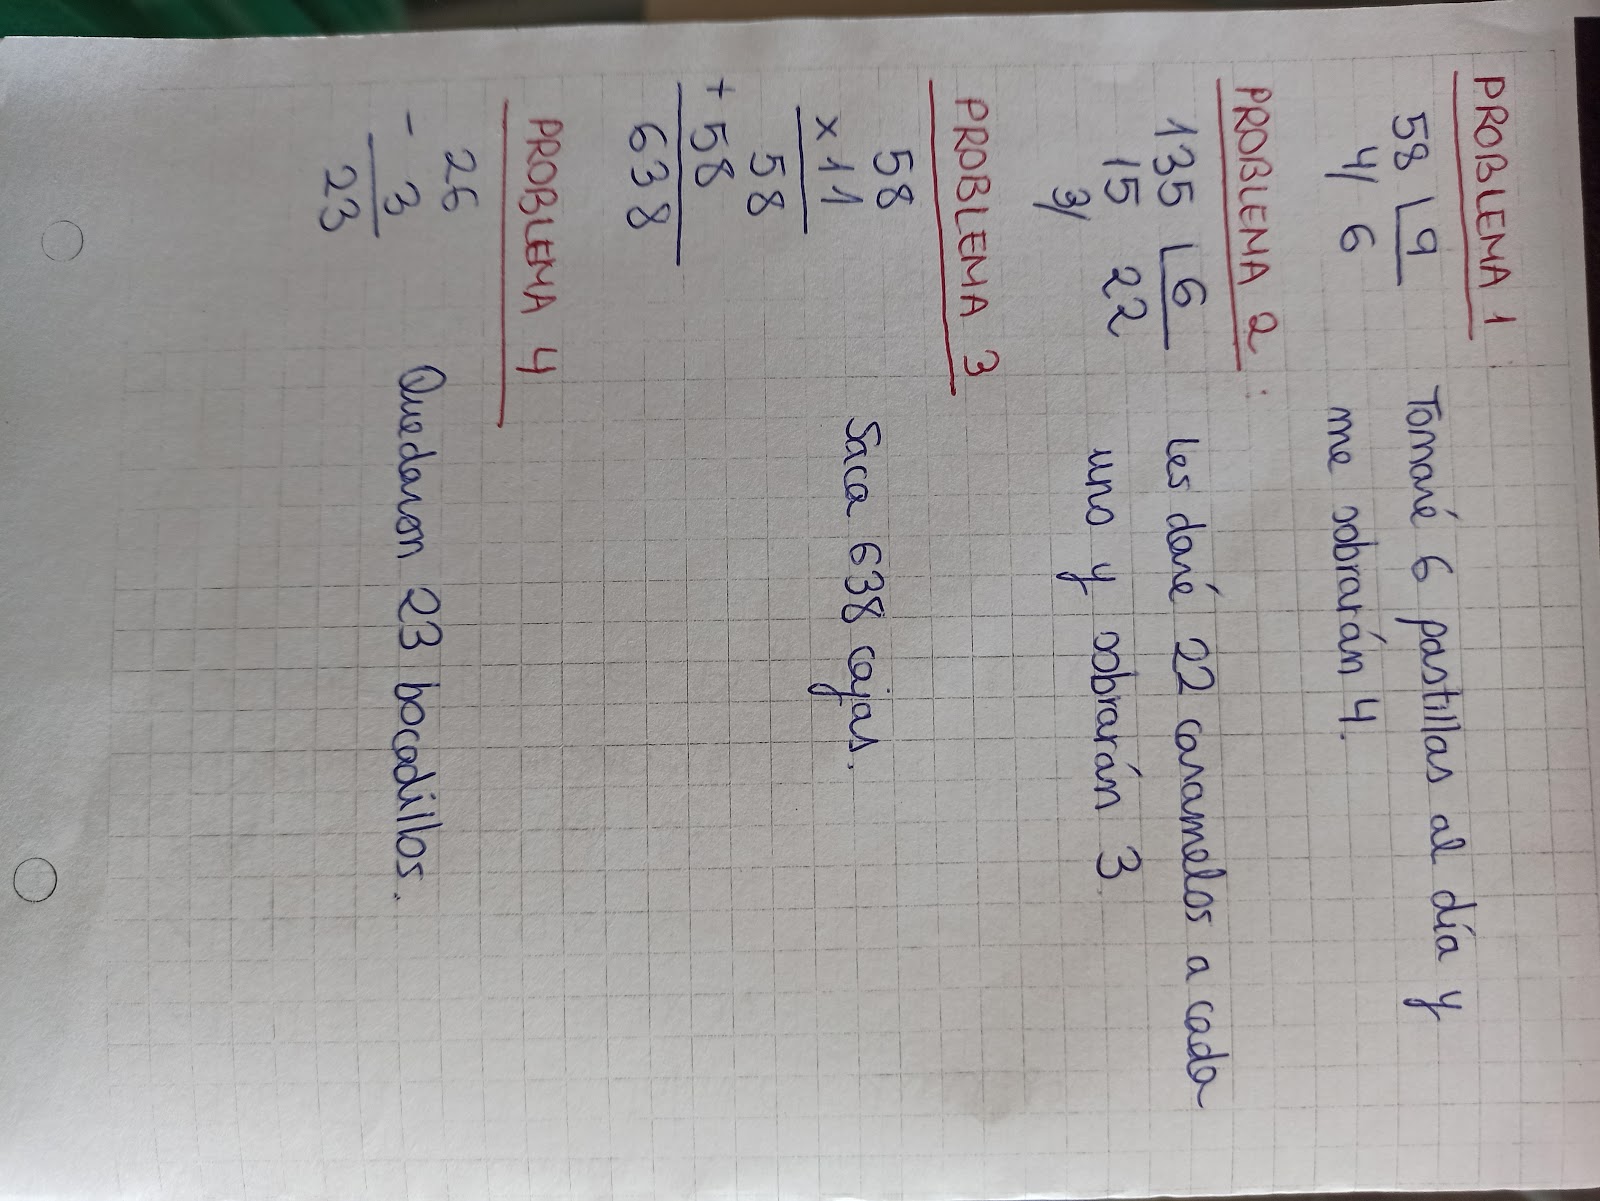 PROBLEMA 1:
58 9
4/ 6
Tomaré 6 pastillas al día y
me sobrarán 4.
PROBLEMA 2:
135 6
15 22
3/
Les daré 22 caramelos a cada
uno y sobrarán 3.
PROBLEMA 3
58
x 11
58
+ 58
638
Saca 638 cajas.
PROBLEMA 4
26
- 3
23
Quedaron 23 bocadillos.